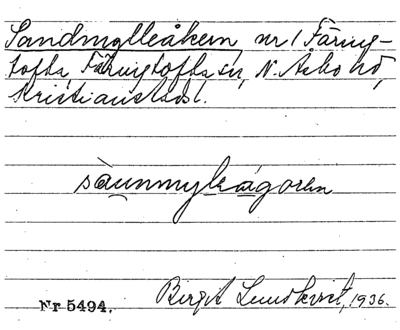 Sandmylleåkern nr 1 Färing-
tofta, Färingtofta sn, N. Åsbo hd,
Kristianstads l.
sàunmyleágorhn
Nr 5494. Birgit Lundkvist, 1936.